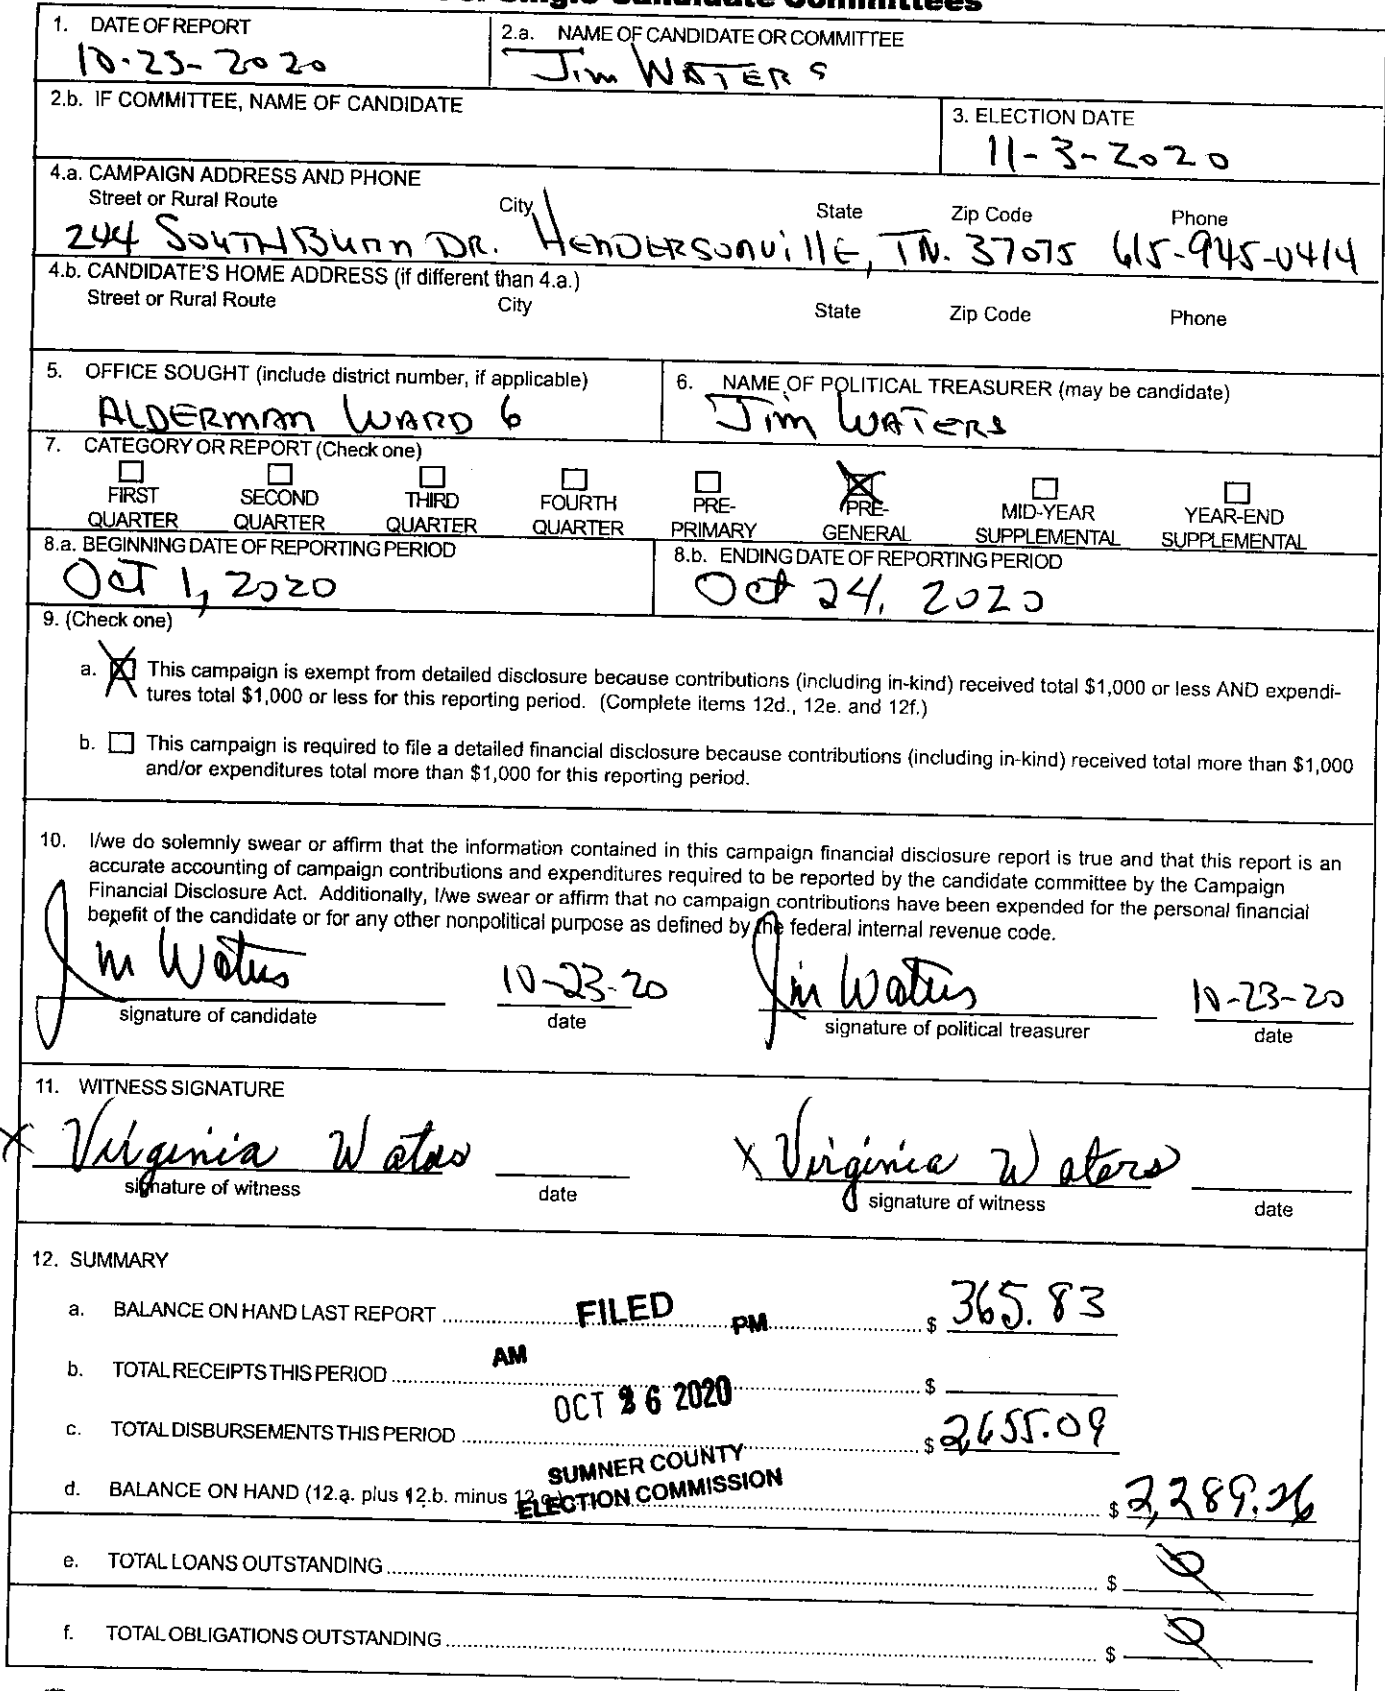 1. DATE OF REPORT
10-25-2020
2.a. NAME OF CANDIDATE OR COMMITTEE
Jim WATERS
2.b. IF COMMITTEE, NAME OF CANDIDATE
3. ELECTION DATE
11-3-2020
4.a. CAMPAIGN ADDRESS AND PHONE
Street or Rural Route City State Zip Code Phone
244 SOUTHBURN DR. HENDERSONVILLE, TN. 37075 615-945-0414
4.b. CANDIDATE'S HOME ADDRESS (if different than 4.a.)
Street or Rural Route City State Zip Code Phone
5. OFFICE SOUGHT (include district number, if applicable)
ALDERMAN WARD 6
6. NAME OF POLITICAL TREASURER (may be candidate)
Jim WATERS
7. CATEGORY OR REPORT (Check one)
FIRST QUARTER
SECOND QUARTER
THIRD QUARTER
FOURTH QUARTER
PRE-PRIMARY
PRE-GENERAL
MID-YEAR SUPPLEMENTAL
YEAR-END SUPPLEMENTAL
8.a. BEGINNING DATE OF REPORTING PERIOD
Oct 1, 2020
8.b. ENDING DATE OF REPORTING PERIOD
Oct 24, 2020
9. (Check one)
a. This campaign is exempt from detailed disclosure because contributions (including in-kind) received total $1,000 or less AND expendi-
tures total $1,000 or less for this reporting period. (Complete items 12d., 12e. and 12f.)
b. This campaign is required to file a detailed financial disclosure because contributions (including in-kind) received total more than $1,000
and/or expenditures total more than $1,000 for this reporting period.
10. I/we do solemnly swear or affirm that the information contained in this campaign financial disclosure report is true and that this report is an
accurate accounting of campaign contributions and expenditures required to be reported by the candidate committee by the Campaign
Financial Disclosure Act. Additionally, I/we swear or affirm that no campaign contributions have been expended for the personal financial
benefit of the candidate or for any other nonpolitical purpose as defined by the federal internal revenue code.
Jim Waters 10-23-20 Jim Waters 10-23-20
signature of candidate date signature of political treasurer date
11. WITNESS SIGNATURE
X Virginia Waters X Virginia Waters
signature of witness date signature of witness date
12. SUMMARY
a. BALANCE ON HAND LAST REPORT $ 365.83
FILED
PM
AM
b. TOTAL RECEIPTS THIS PERIOD $
OCT 26 2020
c. TOTAL DISBURSEMENTS THIS PERIOD $ 2,655.09
SUMNER COUNTY
ELECTION COMMISSION
d. BALANCE ON HAND (12.a. plus 12.b. minus $ 2,289.26
e. TOTAL LOANS OUTSTANDING $ 0
f. TOTAL OBLIGATIONS OUTSTANDING $ 0